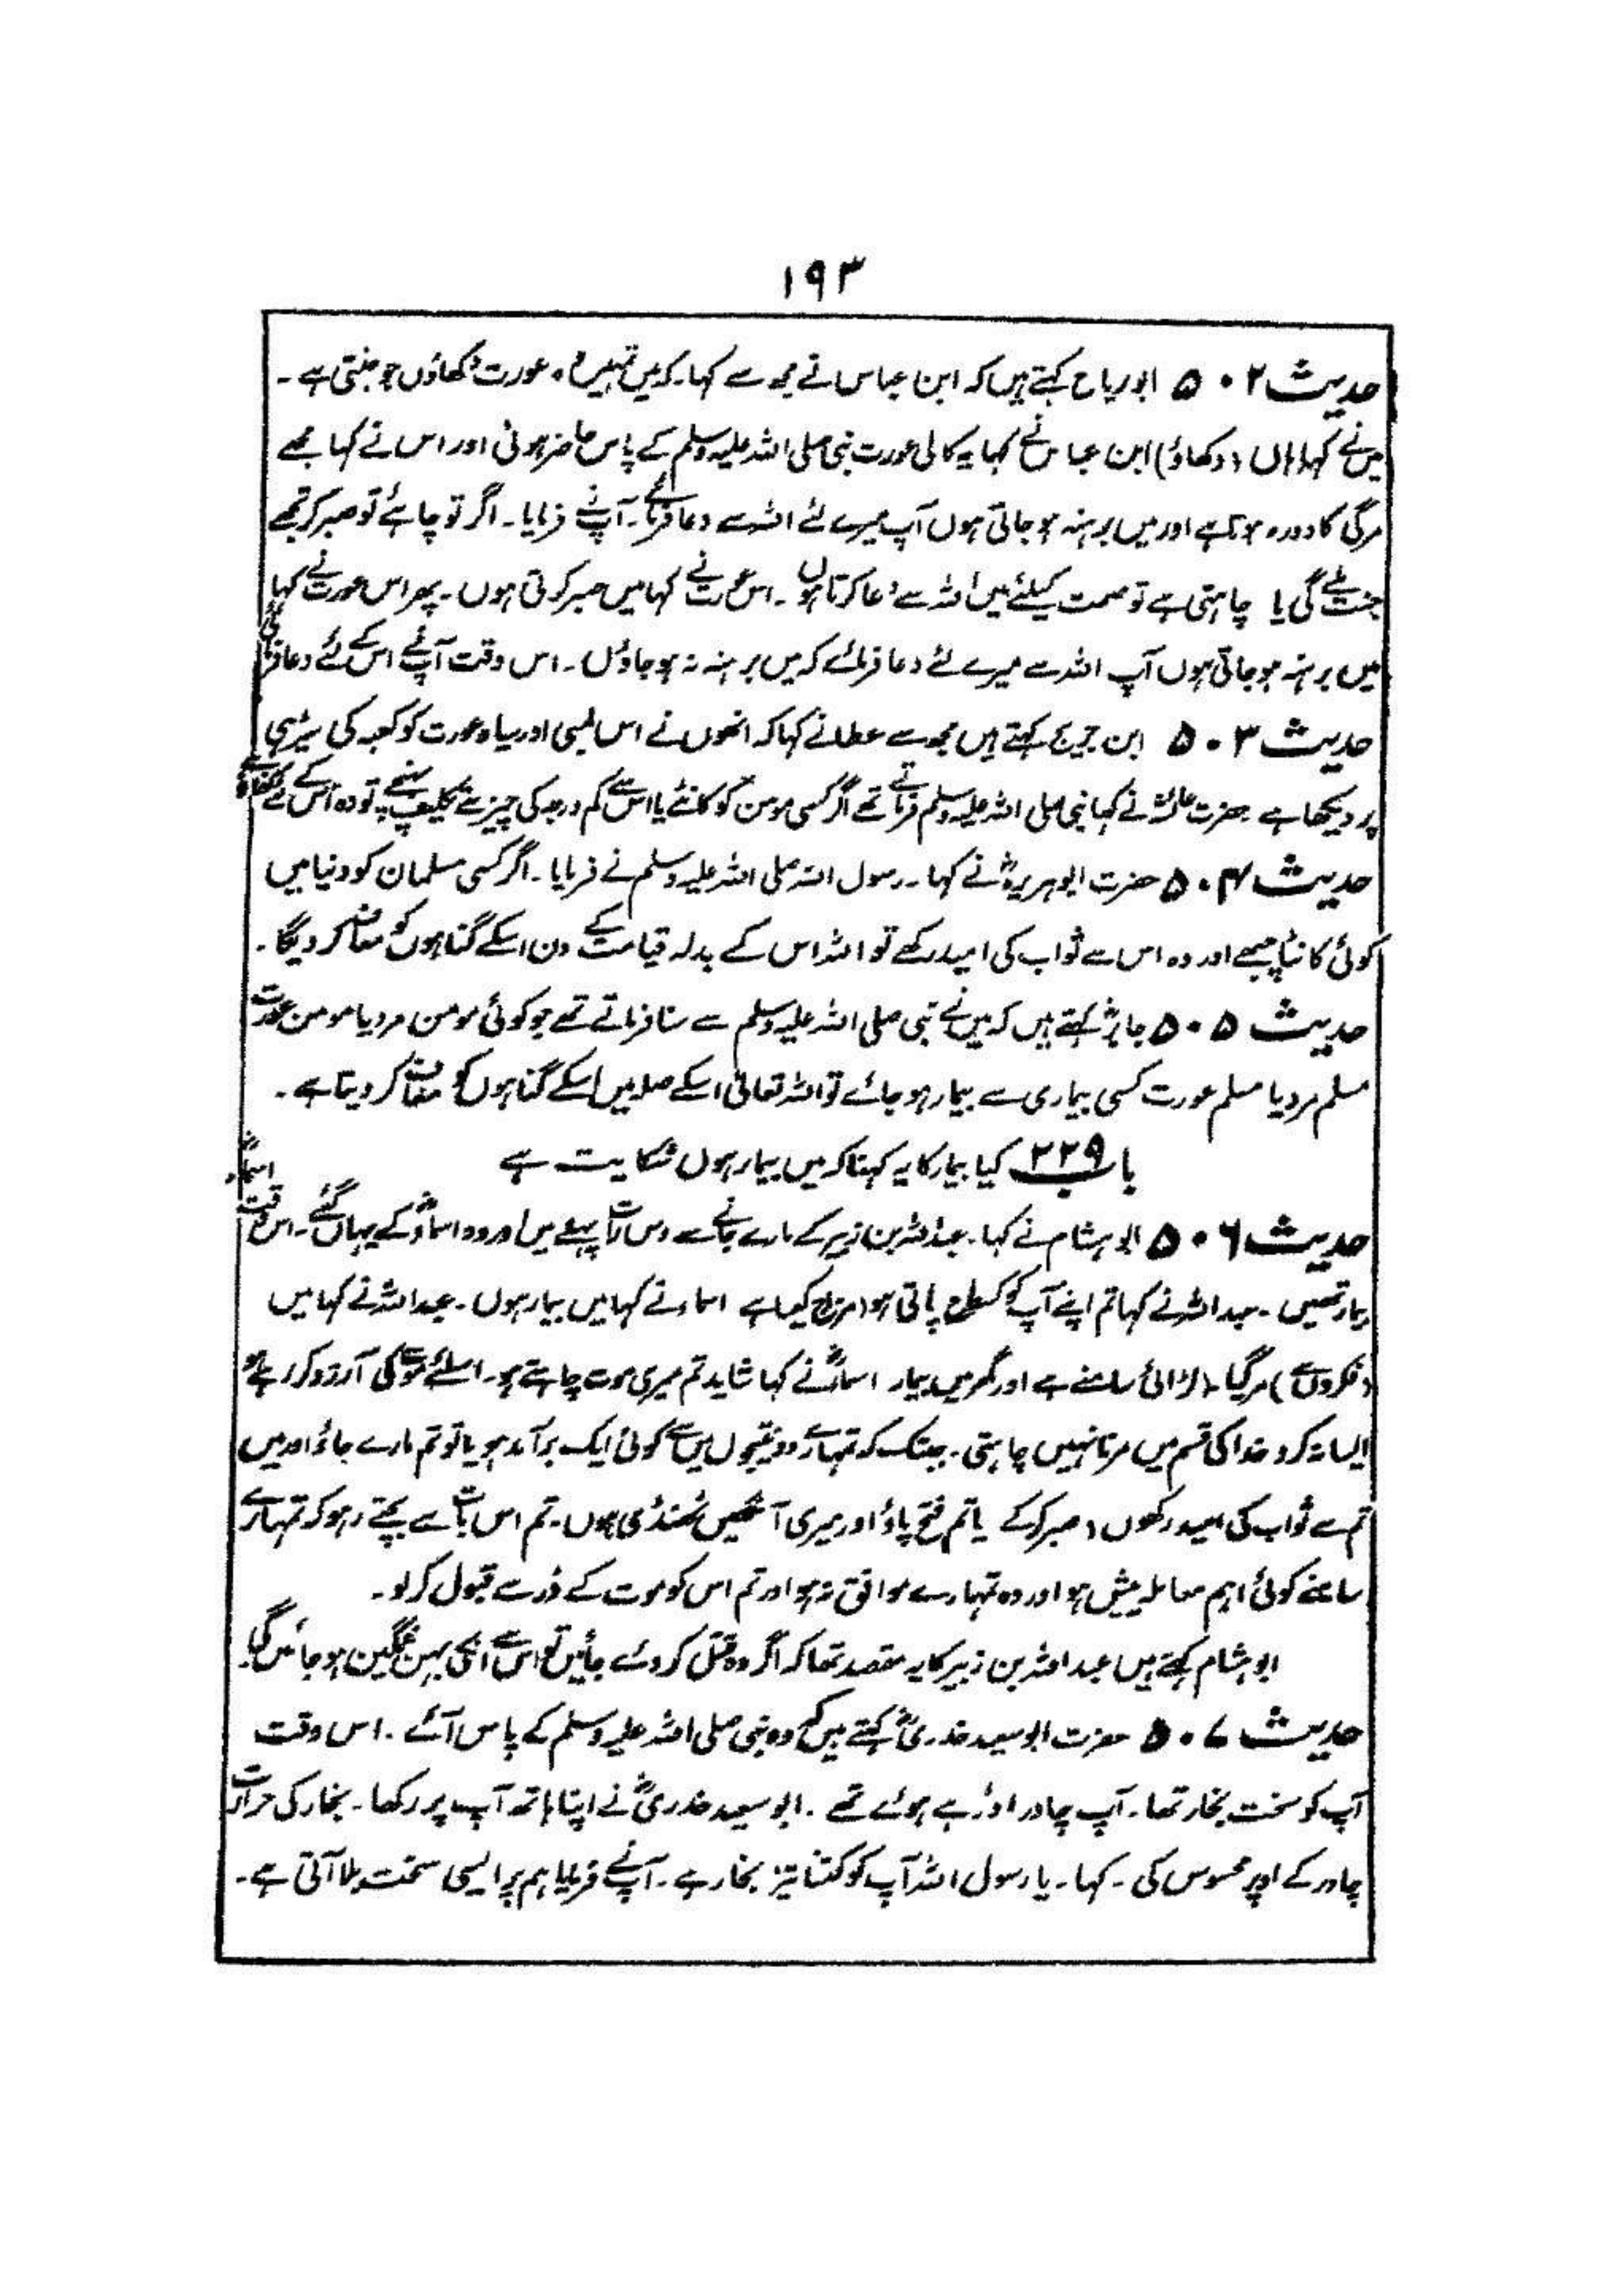 ۱۹۳
حدیث ۵۰۲ ابو رباح کہتے ہیں کہ ابن عباس نے مجھ سے کہا۔ کہ میں تمہیں وہ عورت دکھاؤں جو جنتی ہے۔
میں نے کہا ہاں (دکھاؤ) ابن عباس نے کہا یہ کالی عورت نبی صلی اللہ علیہ وسلم کے پاس حاضر ہوئی اور اس نے کہا مجھے
مرگی کا دورہ ہوتا ہے اور میں برہنہ ہو جاتی ہوں آپ میرے لئے اللہ سے دعا فرمائے۔ آپ نے فرمایا۔ اگر تو چاہے تو صبر کر تجھے
جنت ملے گی یا چاہتی ہے تو صحت کیلئے میں اللہ سے دعا کرتا ہوں۔ اس عورت نے کہا میں صبر کرتی ہوں۔ پھر اس عورت نے کہا
میں برہنہ ہو جاتی ہوں آپ اللہ سے میرے لئے دعا فرمائے کہ میں برہنہ نہ ہو جاؤں۔ اس وقت آپ نے اس کے لئے دعا فرمائی
حدیث ۵۰۳ ابن جریج کہتے ہیں مجھ سے عطا نے کہا کہ انھوں نے اس لمبی اور سیاہ عورت کو کعبہ کی سیڑہی
پر دیکھا ہے حضرت عائشہؓ نے کہا نبی صلی اللہ علیہ وسلم فرماتے تھے اگر کسی مومن کو کانٹے یا اس سے کم درجہ کی چیز سے تکلیف پہنچے تو وہ اس کے لئے کفارہ ہے
حدیث ۵۰۴ حضرت ابو ہریرہؓ نے کہا۔ رسول اللہ صلی اللہ علیہ وسلم نے فرمایا۔ اگر کسی مسلمان کو دنیا میں
کوئی کانٹا چبھے اور وہ اس سے ثواب کی امید رکھے تو اللہ اس کے بدلہ قیامت کے دن اسکے گناہوں کو معاف کر دیگا۔
حدیث ۵۰۵ جابرؓ کہتے ہیں کہ میں نے نبی صلی اللہ علیہ وسلم سے سنا فرماتے تھے جو کوئی مومن مرد یا مومن عورت
مسلم مرد یا مسلم عورت کسی بیماری سے بیمار ہو جائے تو اللہ تعالیٰ اسکے صلہ میں اسکے گناہوں کو معاف کر دیتا ہے۔
باب ۲۲۹ کیا بیمار کا یہ کہنا کہ میں بیمار ہوں شکایت ہے
حدیث ۵۰۶ ابو ہشام نے کہا۔ عبداللہ بن زبیر کے مارے جانے سے دس رات پہلے میں اور وہ اسماءؓ کے یہاں گئے۔ اس وقت اسماءؓ
بیمار تھیں۔ عبداللہ نے کہا تم اپنے آپ کو کسطرح پاتی ہو (مزاج کیسا ہے اسماء نے کہا میں بیمار ہوں۔ عبداللہ نے کہا میں
(فکروں سے) مر گیا (لڑائی سامنے ہے اور گھر میں بیمار اسماءؓ نے کہا شاید تم میری موت چاہتے ہو۔ اسلئے موت کی آرزو کر رہے ہو
ایسا نہ کرو خدا کی قسم میں مرنا نہیں چاہتی۔ جبتک کہ تمہارے دو نتیجوں میں سے کوئی ایک برآمد ہو یا تو تم مارے جاؤ اور میں
تم سے ثواب کی امید رکھوں (صبر کر کے یا تم فتح پاؤ اور میری آنکھیں ٹھنڈی ہوں۔ تم اس بات سے بچتے رہو کہ تمہارے
سامنے کوئی اہم معاملہ پیش ہو اور وہ تمہارے موافق نہ ہو اور تم اس کو موت کے ڈر سے قبول کر لو۔
ابو ہشام کہتے ہیں عبداللہ بن زبیر کا یہ مقصد تھا کہ اگر وہ قتل کر دئے جائیں تو اس سے انکی بہن غمگین ہو جائیں گی۔
حدیث ۵۰۷ حضرت ابو سعید خدریؓ کہتے ہیں کہ وہ نبی صلی اللہ علیہ وسلم کے پاس آئے۔ اس وقت
آپ کو سخت بخار تھا۔ آپ چادر اوڑہے ہوئے تھے۔ ابو سعید خدریؓ نے اپنا ہاتھ آپ پر رکھا۔ بخار کی حرارت
چادر کے اوپر محسوس کی۔ کہا۔ یا رسول اللہ آپ کو کتنا تیز بخار ہے۔ آپ نے فرمایا ہم پر ایسی سخت بلا آتی ہے۔